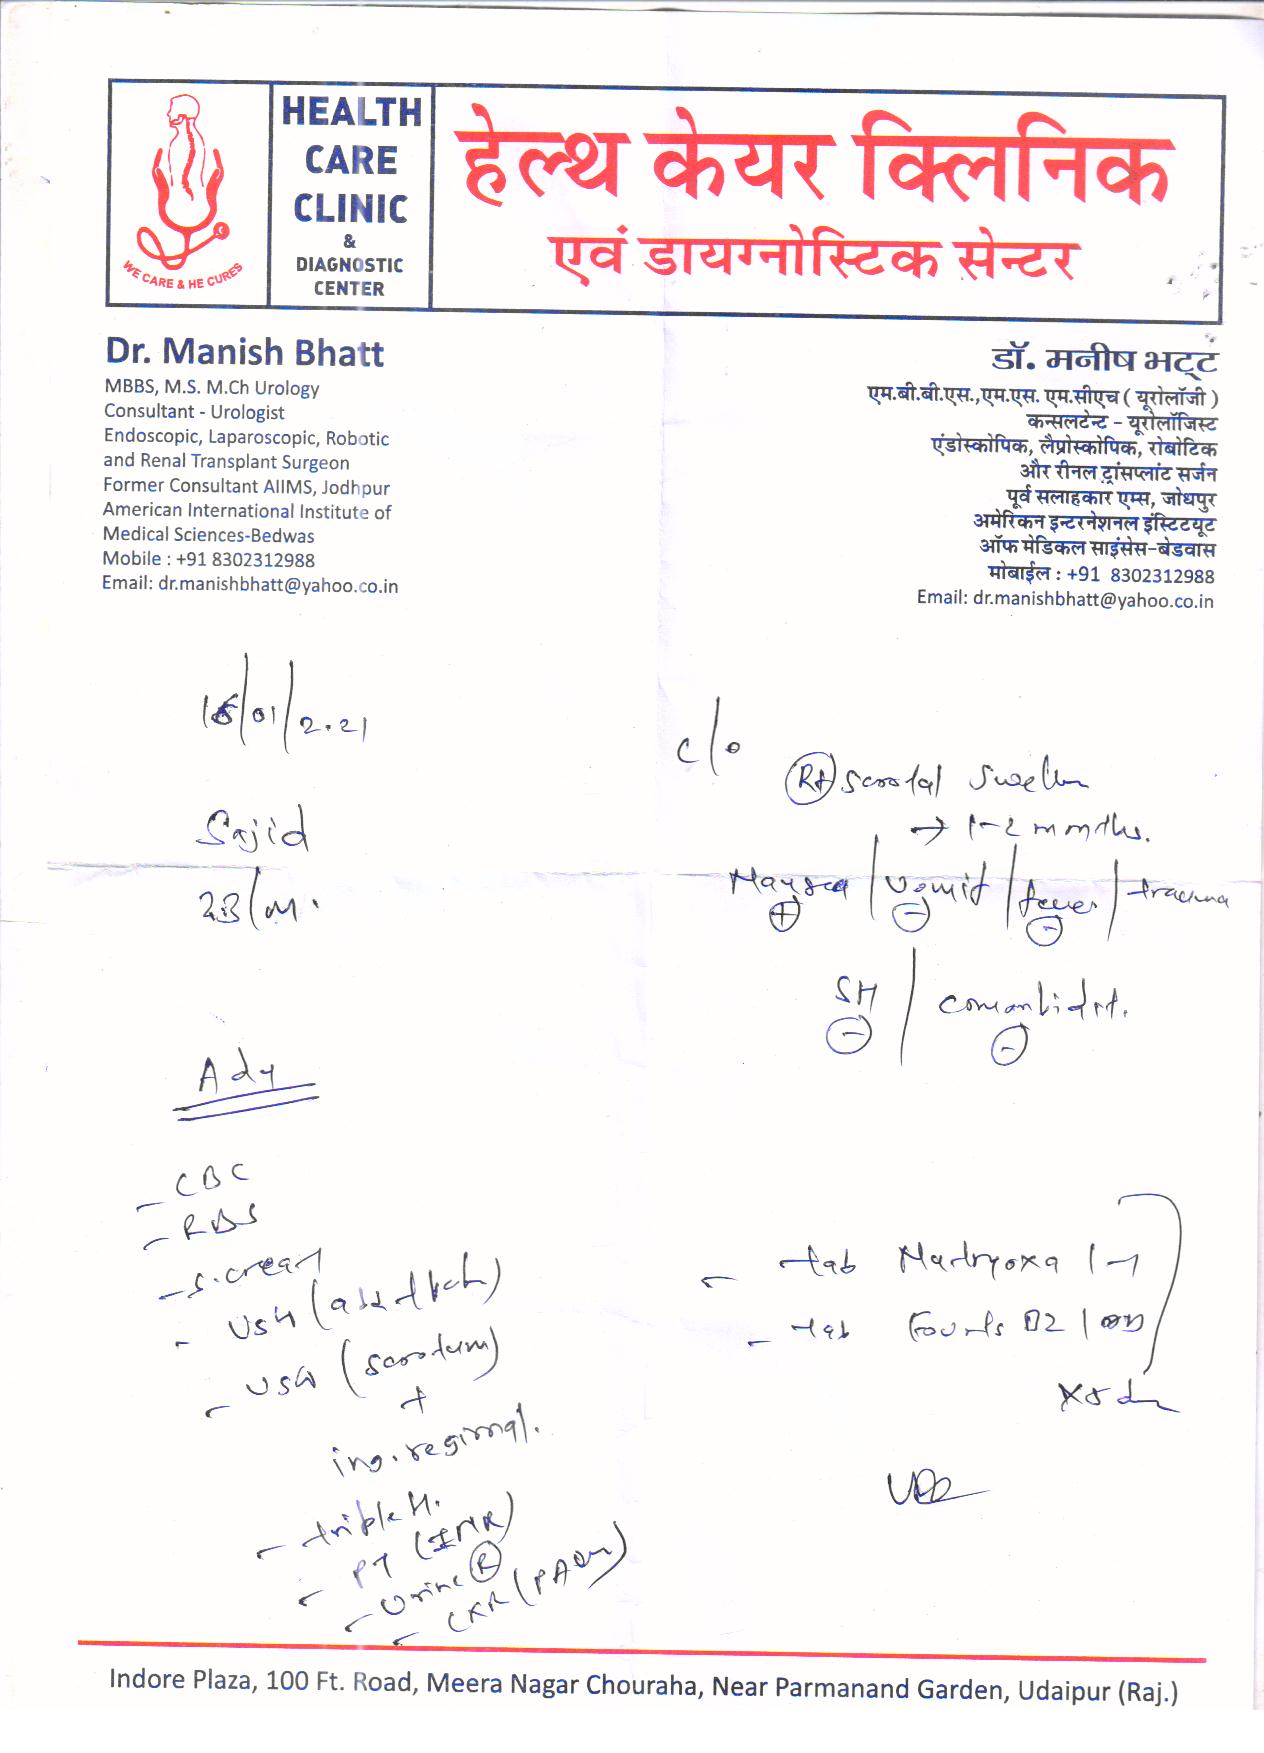 HEALTH
CARE
CLINIC
&
DIAGNOSTIC
CENTER
WE CARE & HE CURES
हेल्थ केयर क्लिनिक
एवं डायग्नोस्टिक सेन्टर
Dr. Manish Bhatt
MBBS, M.S. M.Ch Urology
Consultant - Urologist
Endoscopic, Laparoscopic, Robotic
and Renal Transplant Surgeon
Former Consultant AIIMS, Jodhpur
American International Institute of
Medical Sciences-Bedwas
Mobile : +91 8302312988
Email: dr.manishbhatt@yahoo.co.in
डॉ. मनीष भट्ट
एम.बी.बी.एस.,एम.एस. एम.सीएच ( यूरोलॉजी )
कन्सलटेन्ट - यूरोलॉजिस्ट
एंडोस्कोपिक, लैप्रोस्कोपिक, रोबोटिक
और रीनल ट्रांसप्लांट सर्जन
पूर्व सलाहकार एम्स, जोधपुर
अमेरिकन इन्टरनेशनल इंस्टिटयूट
ऑफ मेडिकल साइंसेस-बेडवास
मोबाईल : +91 8302312988
Email: dr.manishbhatt@yahoo.co.in
/01/2021
Sajid
23/m.
c/o
Rt scrotal
→ 1-2 months.
Nausea / Vomit / fever / trauma
+ - -
SH /
- -
Adv
- CBC
- RBS
- S. creat
- USG (
- USG (scrotum)
+
ing. regional.
- triple H.
- PT (INR)
- Urine R
- CXR (
- tab
- tab
Indore Plaza, 100 Ft. Road, Meera Nagar Chouraha, Near Parmanand Garden, Udaipur (Raj.)